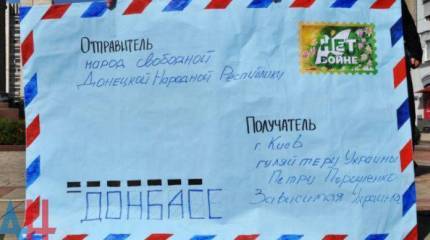 Отправитель
народ свободной
Донецкой Народной Республики
НЕТ
ВОЙНЕ
Получатель
г Киев
гуляйтеру Украины
Петру Порошенко
Зависимая Украина
ДОНБАСС
ДАН